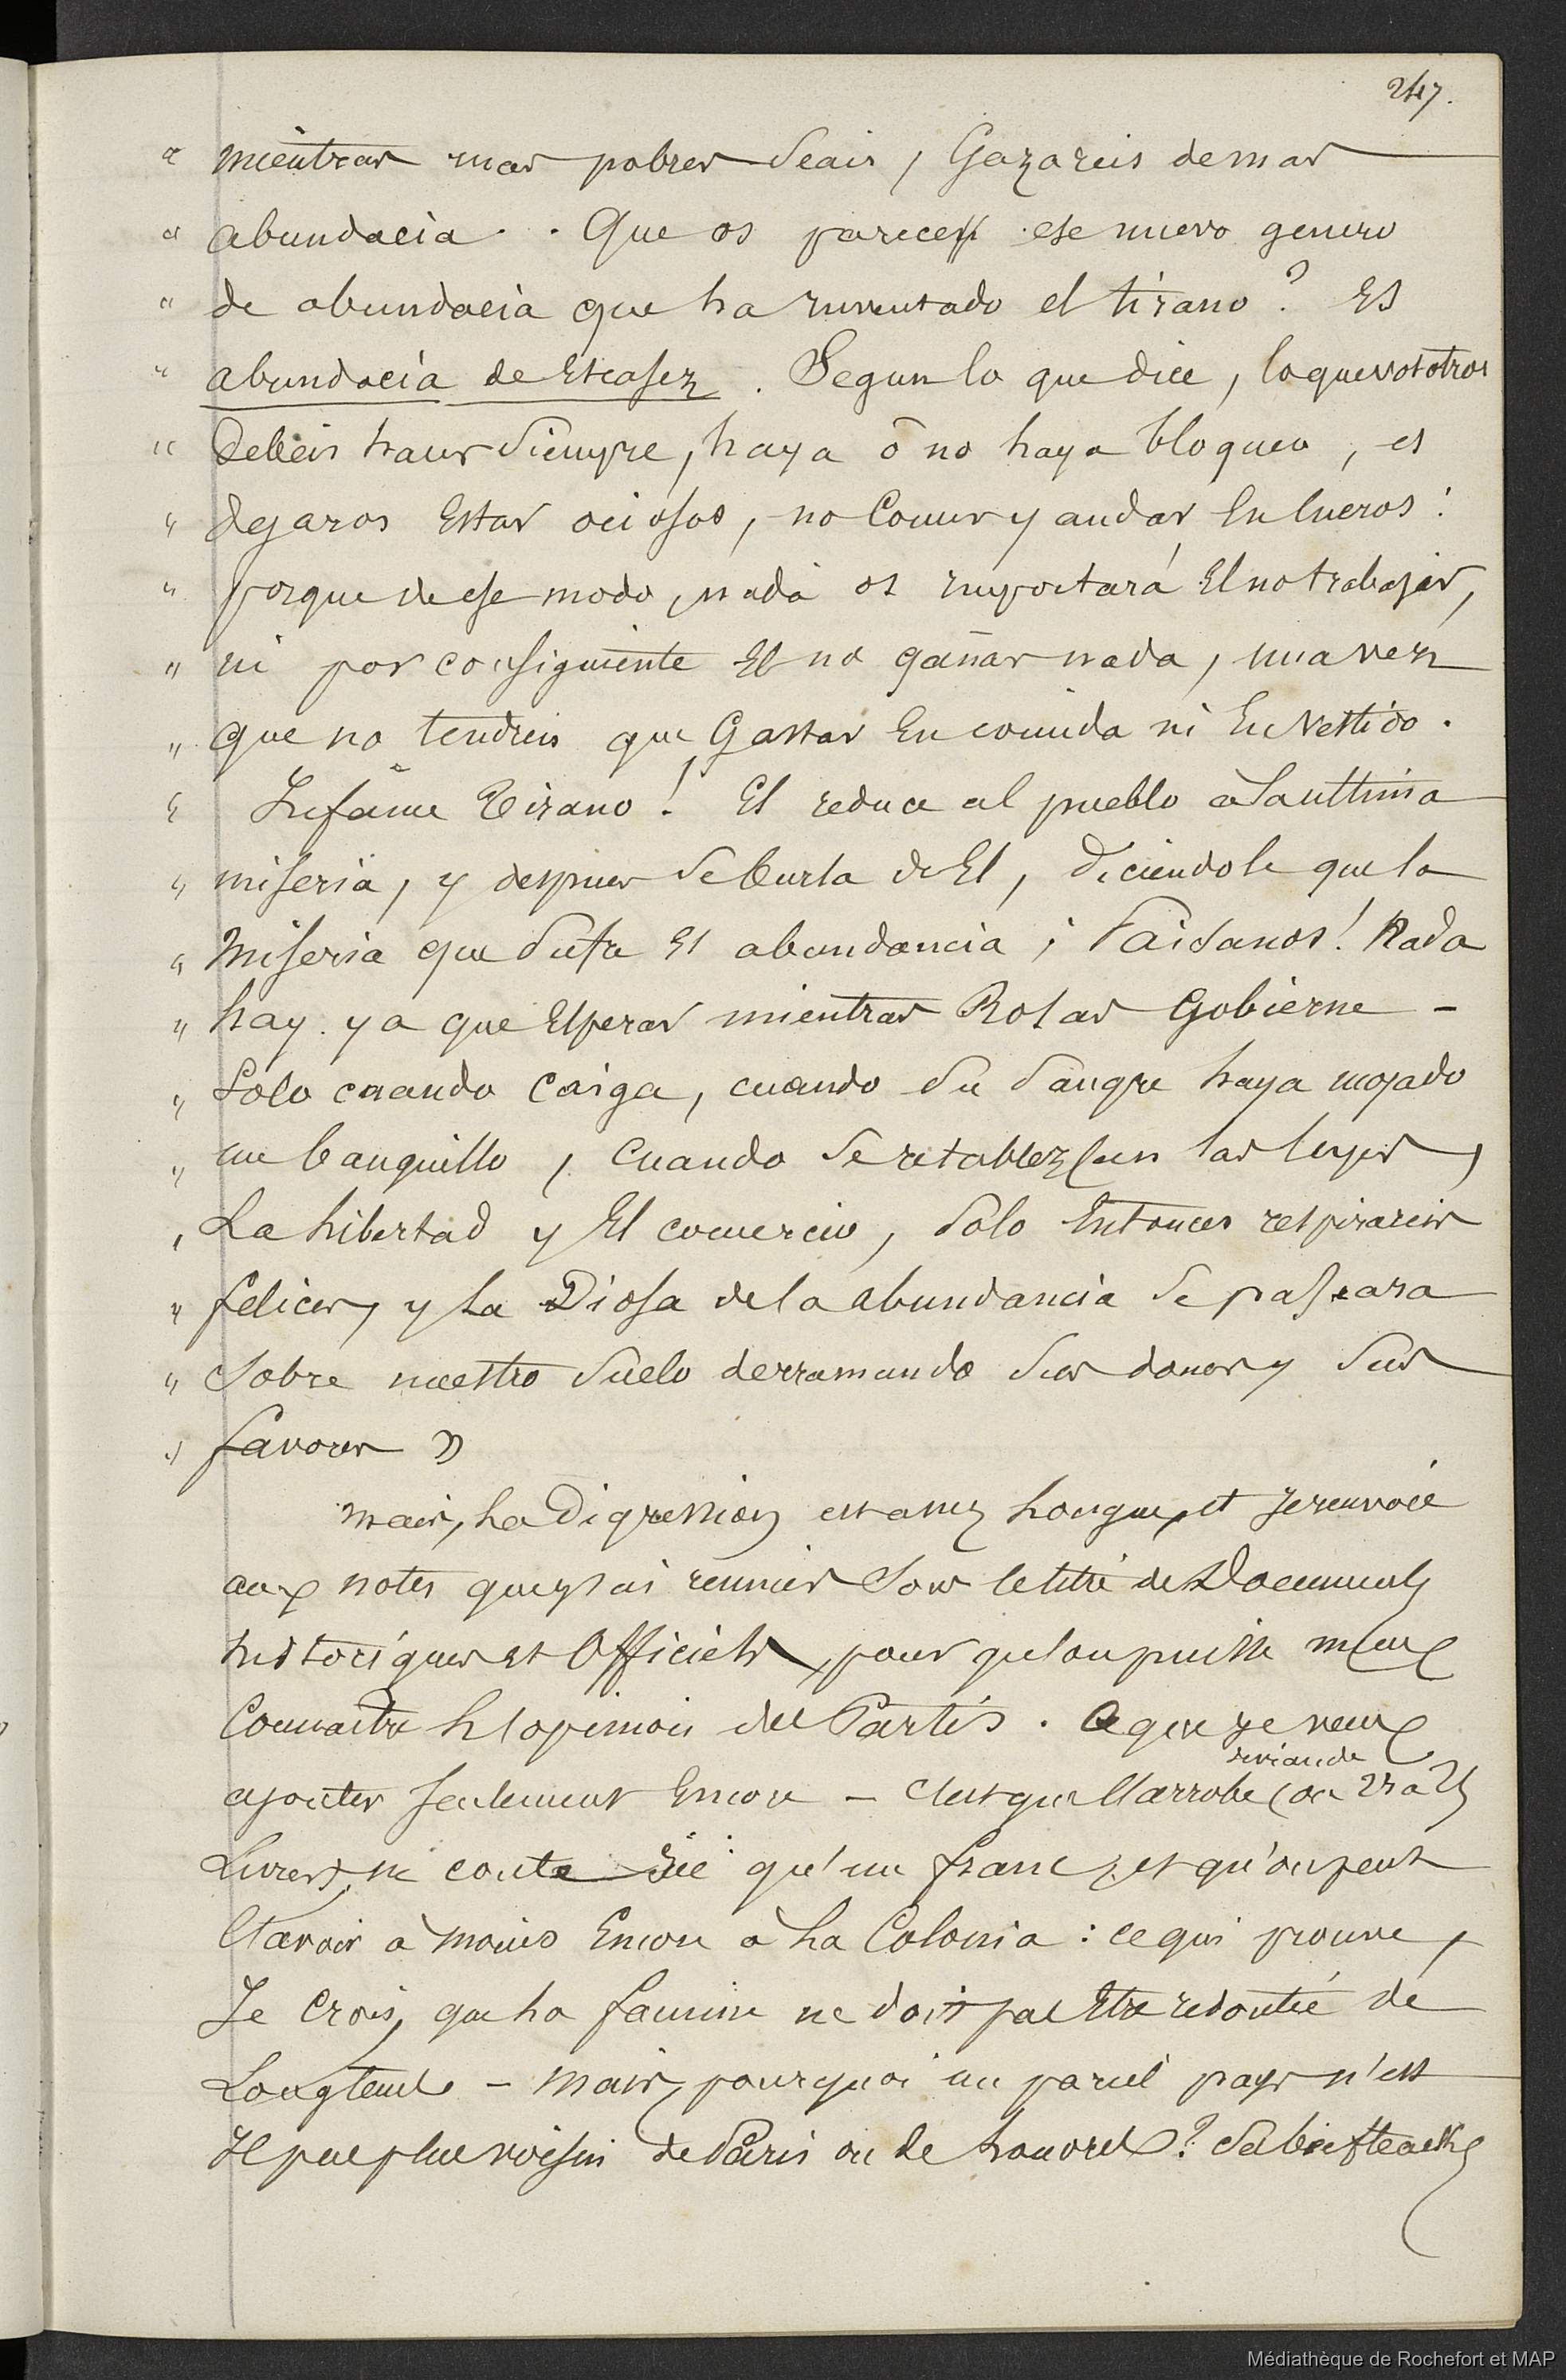 247.
" mientras mas pobres seais, Gozareis de mas
" abundacia. . Que os parece ese nuevo genero
" de abundacia que ha inventado el tirano? Es
" abundacia de Escasez. Segun lo que dice, lo que vosotros
" Debeis hacer siempre, haya ó no haya bloqueo, es
" dejaros Estar ociosos, no Comer y andar En Cueros:
" porque de ese modo, nada os importará El no trabajar,
" ni por consiguiente El no gañar nada, una vez
" que no tendreis que Gastar En comida ni En Vestido.
" Infame Tirano! El reduce al pueblo a la ultima
" miseria, y despues se burla de El, diciendole que la
" Miseria que sufre Es abundancia ¡ Paisanos! Nada
" hay ya que Esperar mientras Rosas Gobierne -
" Solo cuando Caiga, cuando su sangre haya mojado
" un banquillo, Cuando se restablezcan las leyes,
" La Libertad y El comercio, solo Entonces respirareis
" felices, y La Diosa de la abundancia se paseara
" sobre nuestro suelo derramando sus dones y sus
" favores "
Mais, La Digression est assez Longue, et Je renvoie
aux notes que j'ai reunies sous le titre de Documents
historiques et Officiels, pour qu'on puisse mieux
Connaitre L'opinion des Partis. Ce que je veux
ajouter seulement Encore - C'est que l'arrobe (ou 25 à
de viande
Livres), ne coute ici qu'un franc, et qu'on peut
l'avoir à moins Encore à La Colonia : ce qui prouve,
Je Crois, que La famine ne doit pas Etre redoutée de
Longtems - Mais, pourquoi un pareil pays n'est
Il pas plus voisin de Paris ou de Londres? Ses biefteacks
Médiathèque de Rochefort et MAP